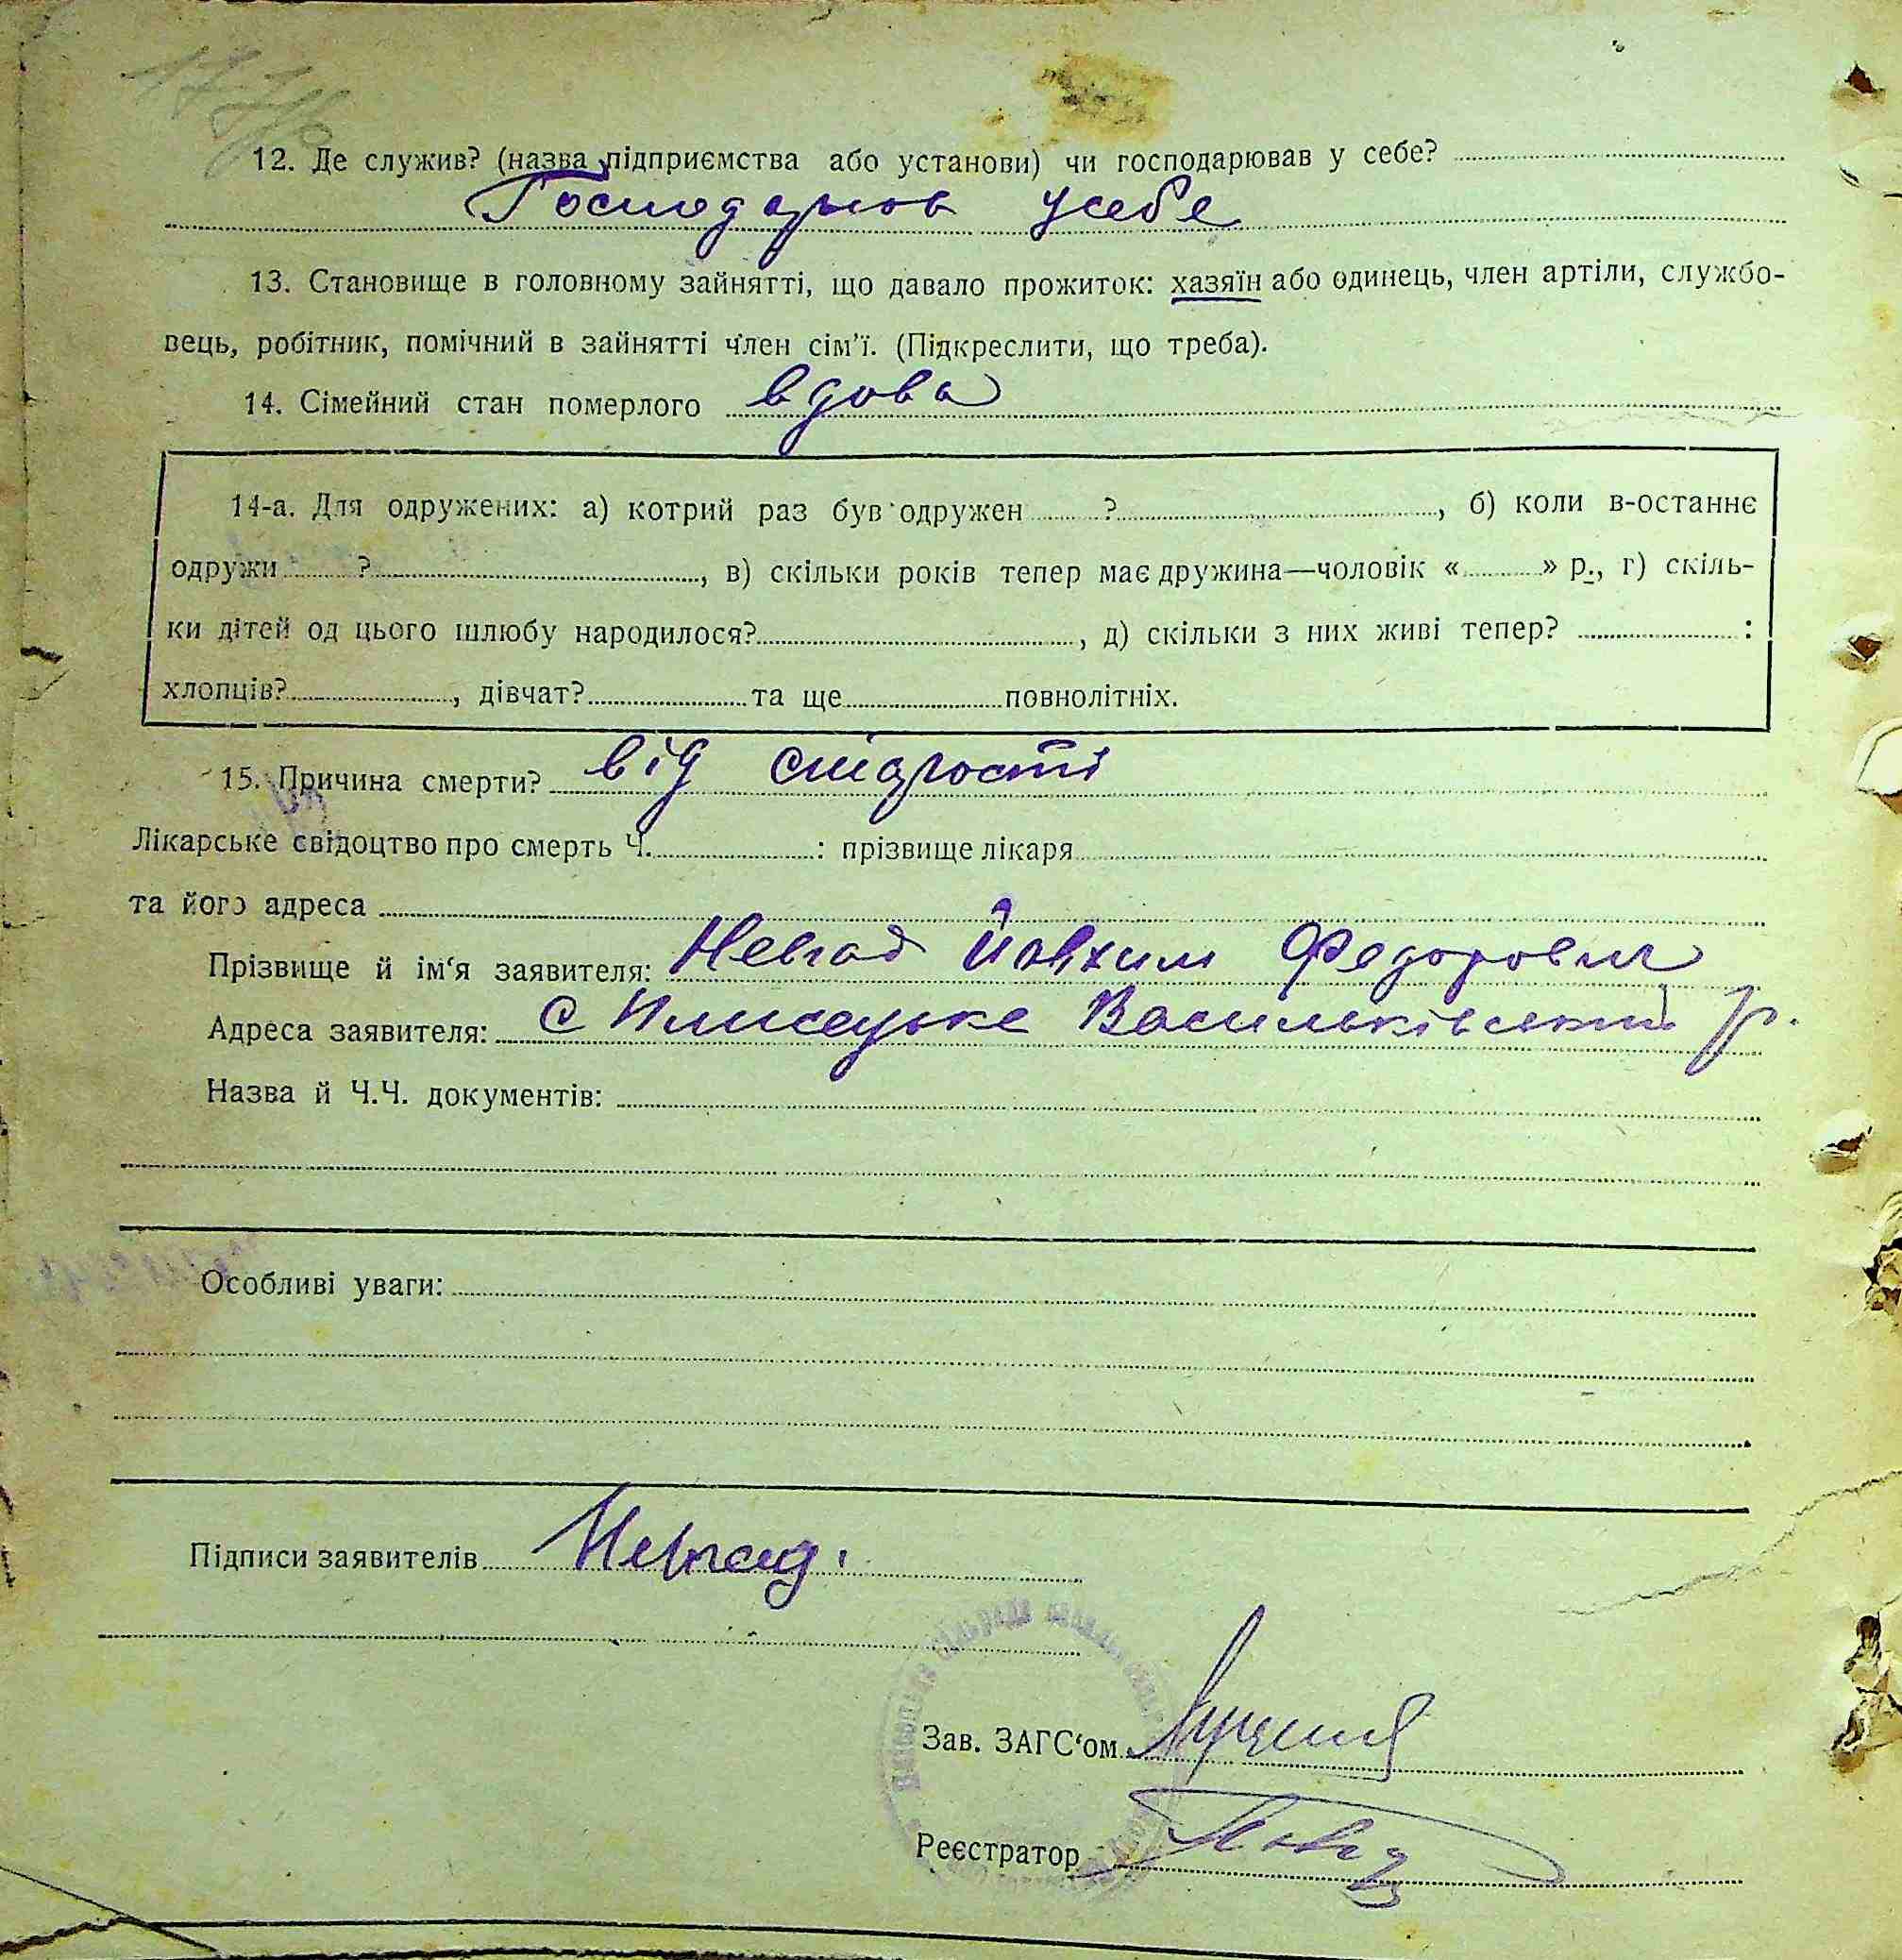 12. Де служив? (назва підприємства або установи) чи господарював у себе?
Господарюв усебе
13. Становище в головному зайнятті, що давало прожиток: хазяїн або одинець, член артіли, службо-
вець, робітник, помічний в зайнятті член сім'ї. (Підкреслити, що треба).
14. Сімейний стан померлого вдова
14-а. Для одружених: а) котрий раз був одружен ? , б) коли в-останнє
одружи ? , в) скільки років тепер має дружина—чоловік « » р., г) скіль-
ки дітей од цього шлюбу народилося? , д) скільки з них живі тепер? :
хлопців? , дівчат? та ще повнолітніх.
15. Причина смерти? від старості
Лікарське свідоцтво про смерть Ч. : прізвище лікаря
та його адреса
Прізвище й ім'я заявителя: Федорович
Адреса заявителя: с Васильківський р.
Назва й Ч.Ч. документів:
Особливі уваги:
Підписи заявителів
Зав. ЗАГС'ом
Реєстратор